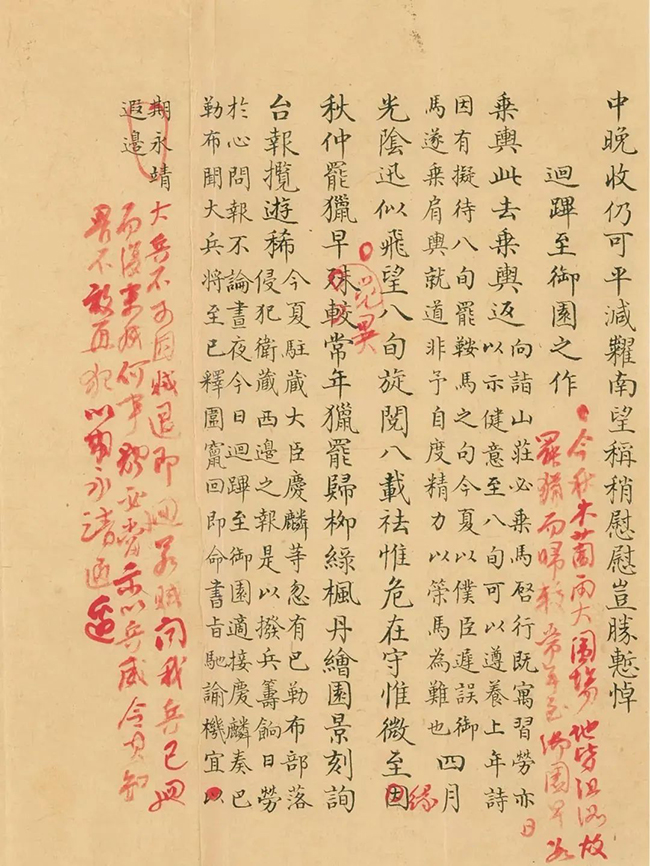 中晚收仍可平減糶南望稱稍慰慰豈勝慙悼
迴蹕至御園之作
今秋木蘭雨大圍場地皆沮洳故
罷獵而歸較常年至御園早多
日
乘輿此去乘輿返
向詣山莊必乘馬啓行既寓習勞亦
以示健意至八旬可以遵養上年詩
因有擬待八旬罷鞍馬之句今夏以僕臣遲誤御
馬遂乘肩輿就道非予自度精力以策馬為難也
四月
光陰迅似飛望八旬旋閱八載祛惟危在守惟微至因
緣
秋仲罷獵早殊較常年獵罷歸柳綠楓丹繪園景刻詢
覺異
台報攬遊稀
今夏駐藏大臣慶麟等忽有巴勒布部落
侵犯衛藏西邊之報是以撥兵籌餉日勞
於心問報不論晝夜今日迴蹕至御園適接慶麟奏巴
勒布聞大兵將至已釋圍竄回即命書旨馳諭機宜以
期永靖
遐邊
大兵不可因賊退即迴若賊聞我兵已迴
而復來成何事體必當示以兵威令其知
畏不敢再犯以期永靖遐邊